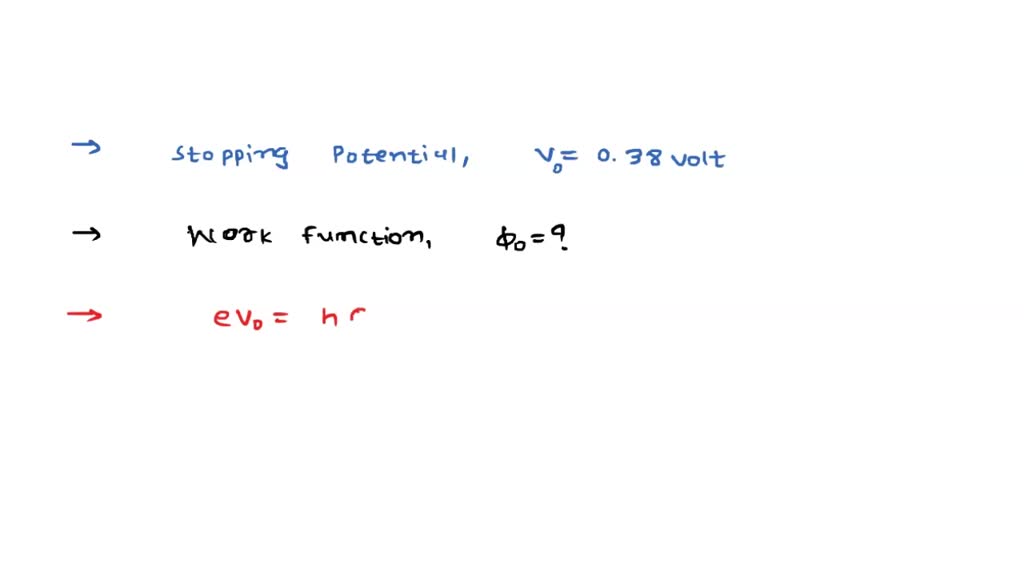 → Stopping Potential, V₀ = 0.38 volt
→ Work function, ϕ₀ = ?
→ eV₀ = h